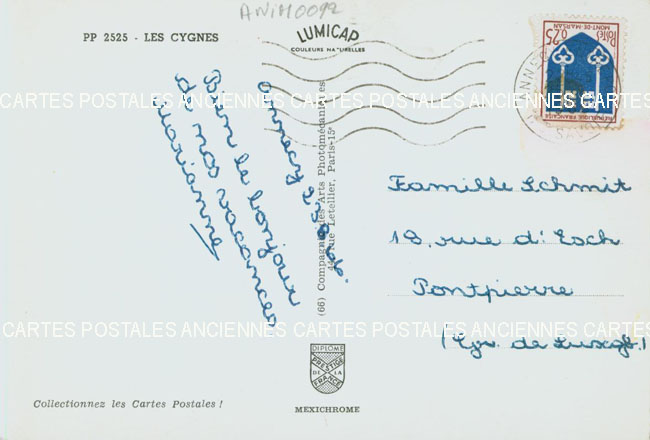 ANIM0092
PP 2525 - LES CYGNES
LUMICAP
COULEURS NATURELLES
0,25
MONT-DE-MARSAN
REPUBLIQUE FRANCAISE
CARTES POSTALES ANCIENNES CARTES POSTALES ANCIENNES CARTES POSTALES
Annecy
Bien le bonjour
de nos vacances
Marianne
(66) Compagnie des Arts Photomécaniques
44, rue Letellier, Paris-15e
Famille Schmit
18, rue d'Esch
Pontpierre
(Lgr. de Luxgb.)
CARTES POSTALES ANCIENNES CARTES POSTALES ANCIENNES CARTES POSTALES
DIPLOME
PRESTIGE
DE LA
FRANCE
Collectionnez les Cartes Postales !
MEXICHROME